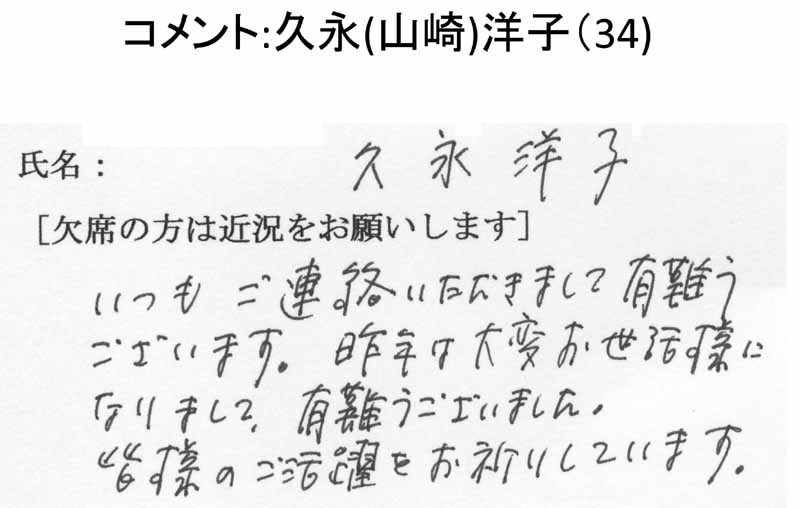 コメント:久永(山崎)洋子（34)
氏名： 久永洋子
［欠席の方は近況をお願いします］
いつもご連絡いただきまして有難う
ございます。昨年は大変お世話様に
なりまして、有難うございました。
皆様のご活躍をお祈りしています。